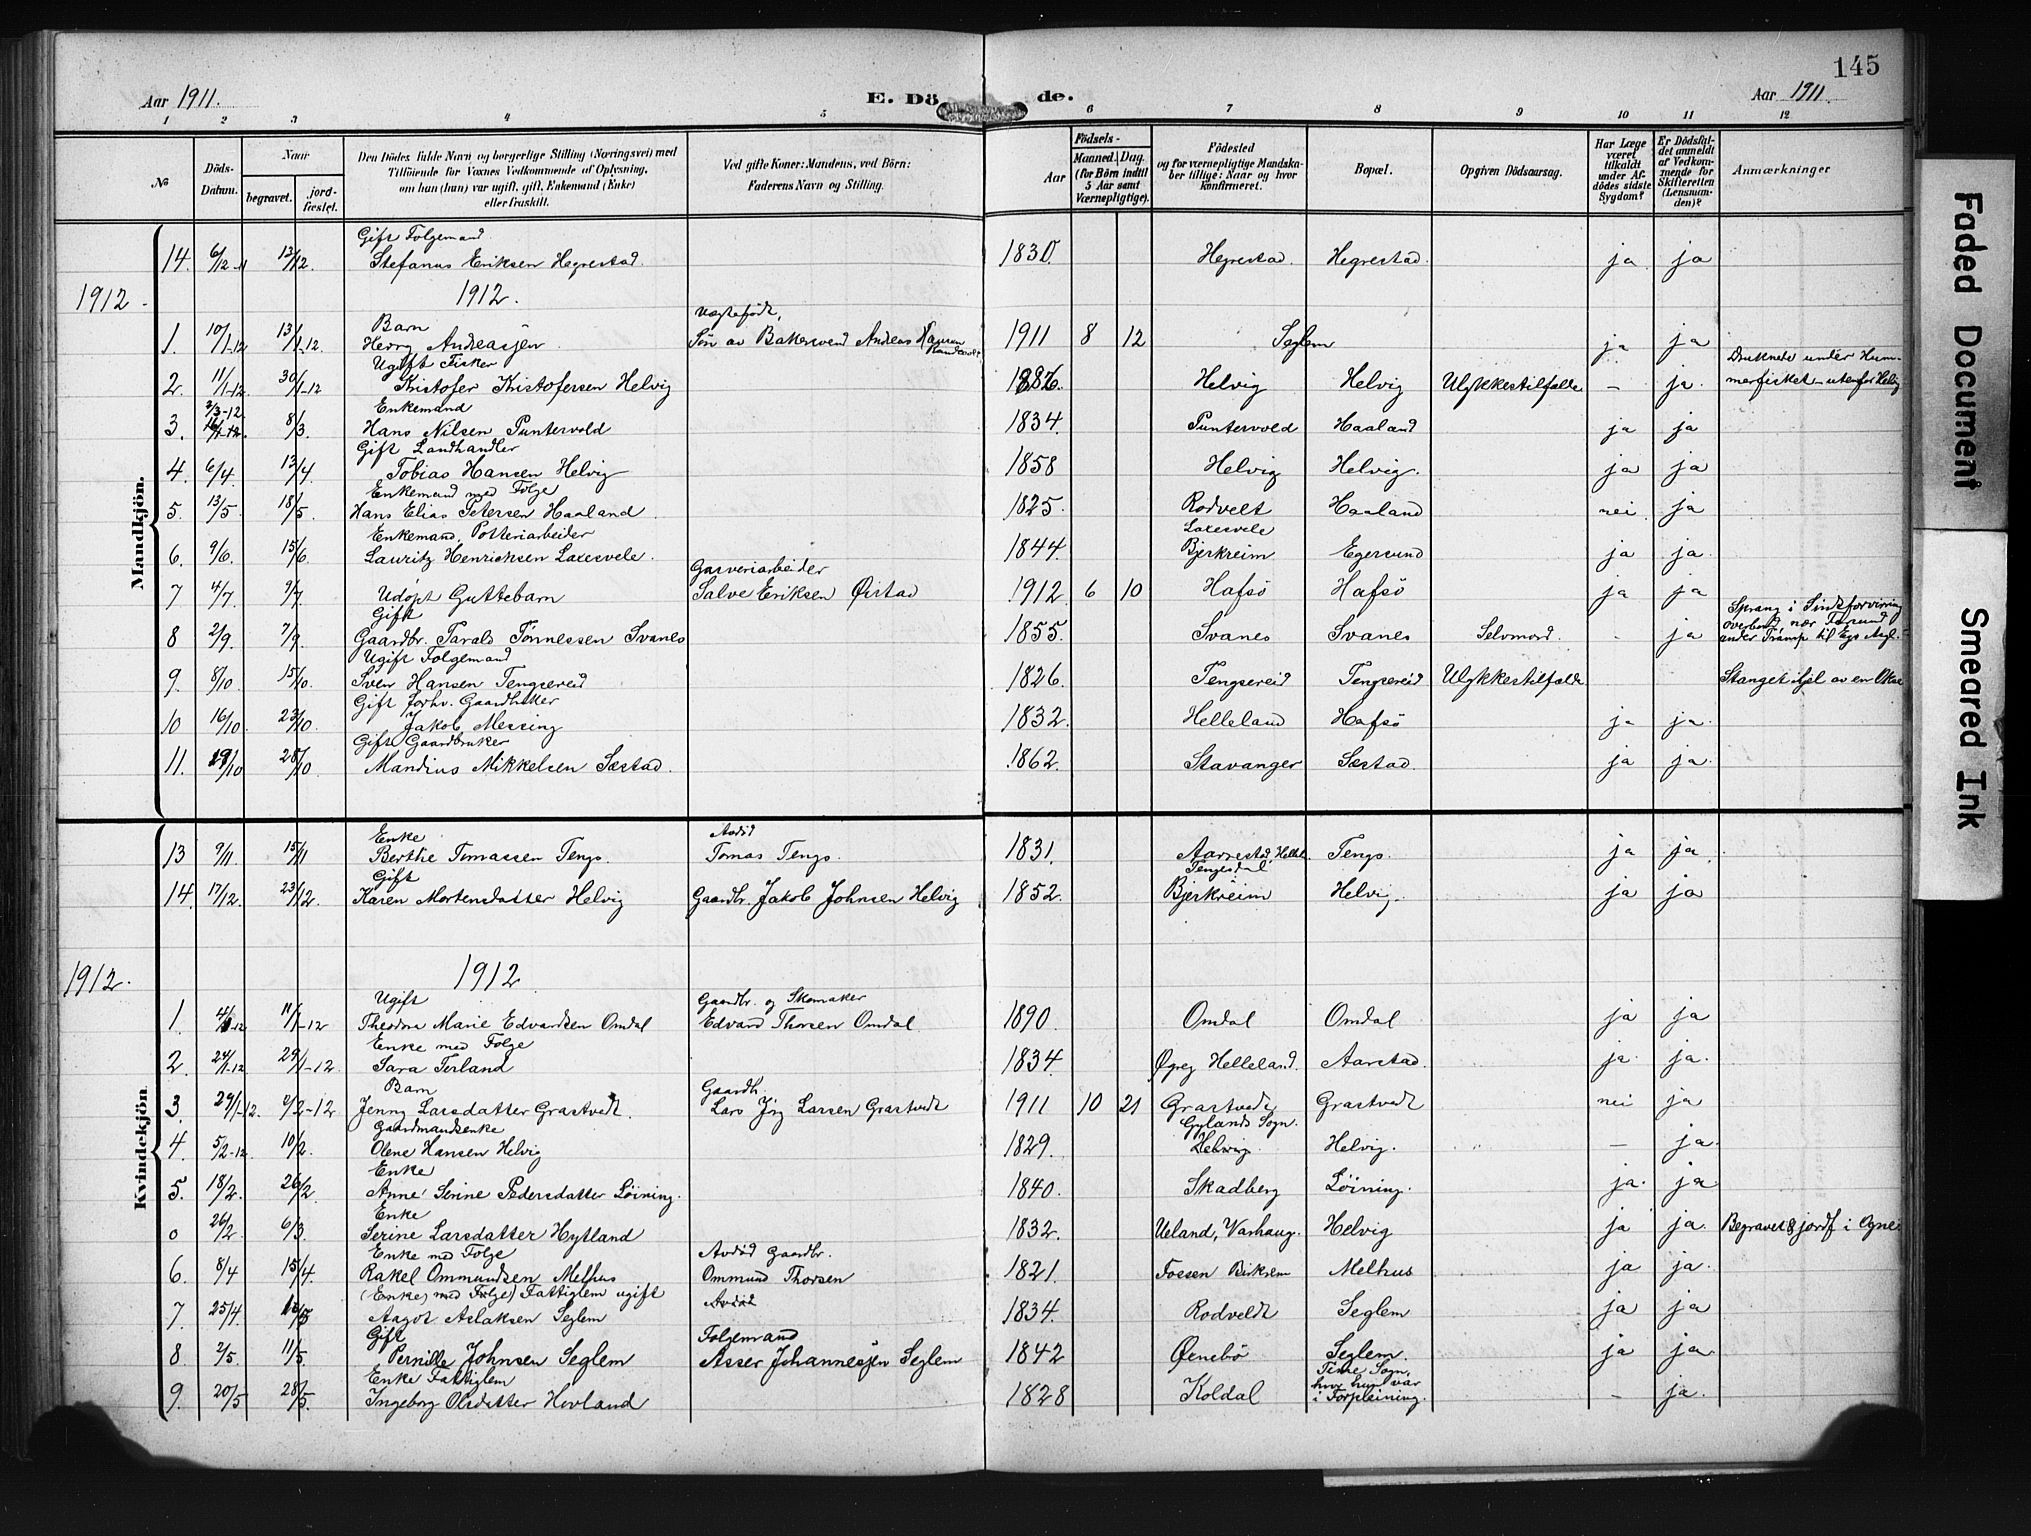 145
Aar 1911.
E. Dö
de.
Aar 1911
1 2 3 4 5 6 7 8 9 10 11 12
No
Döds-
Datum.
Naar
begravet.
jord-
fæstet.
Den Dödes fulde Navn og borgerlige Stilling (Næringsvei) med
Tilföiende for Voxnes Vedkommende af Oplysning,
om hun (han) var ugift, gift, Enkemand (Enke)
eller fraskilt.
Ved gifte Koner: Mandens, ved Börn:
Faderens Navn og Stilling.
Födsels-
Aar
Maaned. Dag.
(for Börn indtil
5 Aar samt
Værnepligtige).
Födested
og for værnepligtige Mandska-
ber tillige: Naar og hvor
konfirmeret.
Bopæl.
Opgiven Dödsaarsag.
Har Læge
været
tilkaldt
under Af-
dödes sidste
Sygdom?
Er Dödsfal-
det anmeldt
af Vedkom-
mende for
Skifteretten
(Lensman-
den)?
Anmærkninger
Mandkjön.
Gift Folgemand
14. 6/12-11 13/12. Stefanus Eriksen Hegrestad 1830. Hegrestad. Hegrestad. ja ja
1912. 1912.
Barn Uægtefødt,
1. 10/1-12 13/1-12. Henry Andreasjen Søn av Bakersvend Andreas 1911 8 12 Seglem ja ja
Ugift Fisker Druknede under Hum-
2. 11/1-12. 30/1-12 Kristofer Kristofersen Helvig Helvig Helvig Ulykkestilfælde – ja merfisket utenfor Helvig
2/3-12 Enkemand
3. 8/3. Hans Nilsen Puntervold 1834. Puntervold Haaland ja ja
Gift Landhandler
4. 6/4 13/4 Tobias Hansen Helvig 1858 Helvig Helvig. ja ja
Enkemand med Folge
5. 13/5 18/5. Hans Elias Petersen Haaland 1825. Rodvelt Haaland nei ja
Enkemand, Potteriarbeider Laxesvele
6. 9/6. 15/6 Lauritz Henricksen Laxesvele. 1844. Bjerkreim Egersund ja ja
Garveriarbeider
7 4/7 9/7. Udøpt Guttebarn Salve Eriksen Øistad 1912. 6 10 Hafsö Hafsö ja ja
Gift Sprang i Sindsforvirring
8 2/9. 7/9. Gaardbr. Tarald Tønnessen Svanes 1855. Svanes Svanes Selvmord. - ja
overbord nær
Ugift Folgemand
9. 8/10 15/10. Sven Hansen Tengsereid 1826. Tengsereid Tengsereid Ulykkestilfælde Stanget ihjel av en Okse
Gift forhv. Gaardbruker
10 16/10 23/10. Jakob Messing 1832. Helleland Hafsö ja ja
Gift Gaardbruker
11. 28/10 Mandius Mikkelsen Sæstad. 1862. Stavanger Sæstad. ja ja
Kvindekjön
Enke Avdöd
13 9/11 15/11 Berthe Tomassen Tengs. Tomas Tengs. 1831. Aarrestad, Hellel. Tengs. ja ja
Gift Tengesdal
14. 17/12. 23/12. Karen Mortensdatter Helvig Gaardbr. Jakob Johnsen Helvig 1852. Bjerkreim Helvig. ja ja
1912. 1912
Ugift Gaardbr. og Skomaker
1. 11/1-12 Theodora Marie Edvardsen Omdal Edvard Thorsen Omdal 1890. Omdal Omdal ja ja
Enke med Folge
2. 24/1-12 29/1-12 Sara Terland 1834. Øgrey Helleland. Aarstad. ja ja
Barn Gaardb.
3. 29/1-12. 9/2-12 Jenny Larsdatter Grastvedt Lars Jörg Larsen Grastvedt 1911 10 21 Grastvedt Grastvedt nei ja
Gaardmandsenke Gylands Sogn.
4. 5/2-12. 10/2. Olene Hansen Helvig 1829. Helvig. – ja
Enke
5. 18/2. 26/2 Anne Serine Pedersdatter Löining. 1840. Skadberg Löining. ja ja
Enke
0 26/2. 6/3. Serine Larsdatter Hytland 1832. Ueland, Varhaug. Helvig ja ja Begravet & jordf i Ogne
Enke med Folge Avdöd Gaardbr.
6. 8/4 15/4. Rakel Ommundsen Melhus Ommund Thorsen 1821. Fossen Birkrem Melhus ja ja
(Enke) med Folge) Fattiglem ugift Avdöd
7. 25/4. Aagot Aslaksen Seglem 1834. Rodveldt Seglem ja ja
Gift Folgemand
8 2/5. 11/5. Pernille Johnsen Seglem Asser Johannesjen Seglem 1842 Ørnebö Seglem. ja ja
Enke Fattiglem Time Sogn,
hvor hun var
9. 20/5 28/5. Ingeborg Olsdatter Hovland 1828 Koldal i Forpleining. – ja.
Faded Document
Smeared Ink